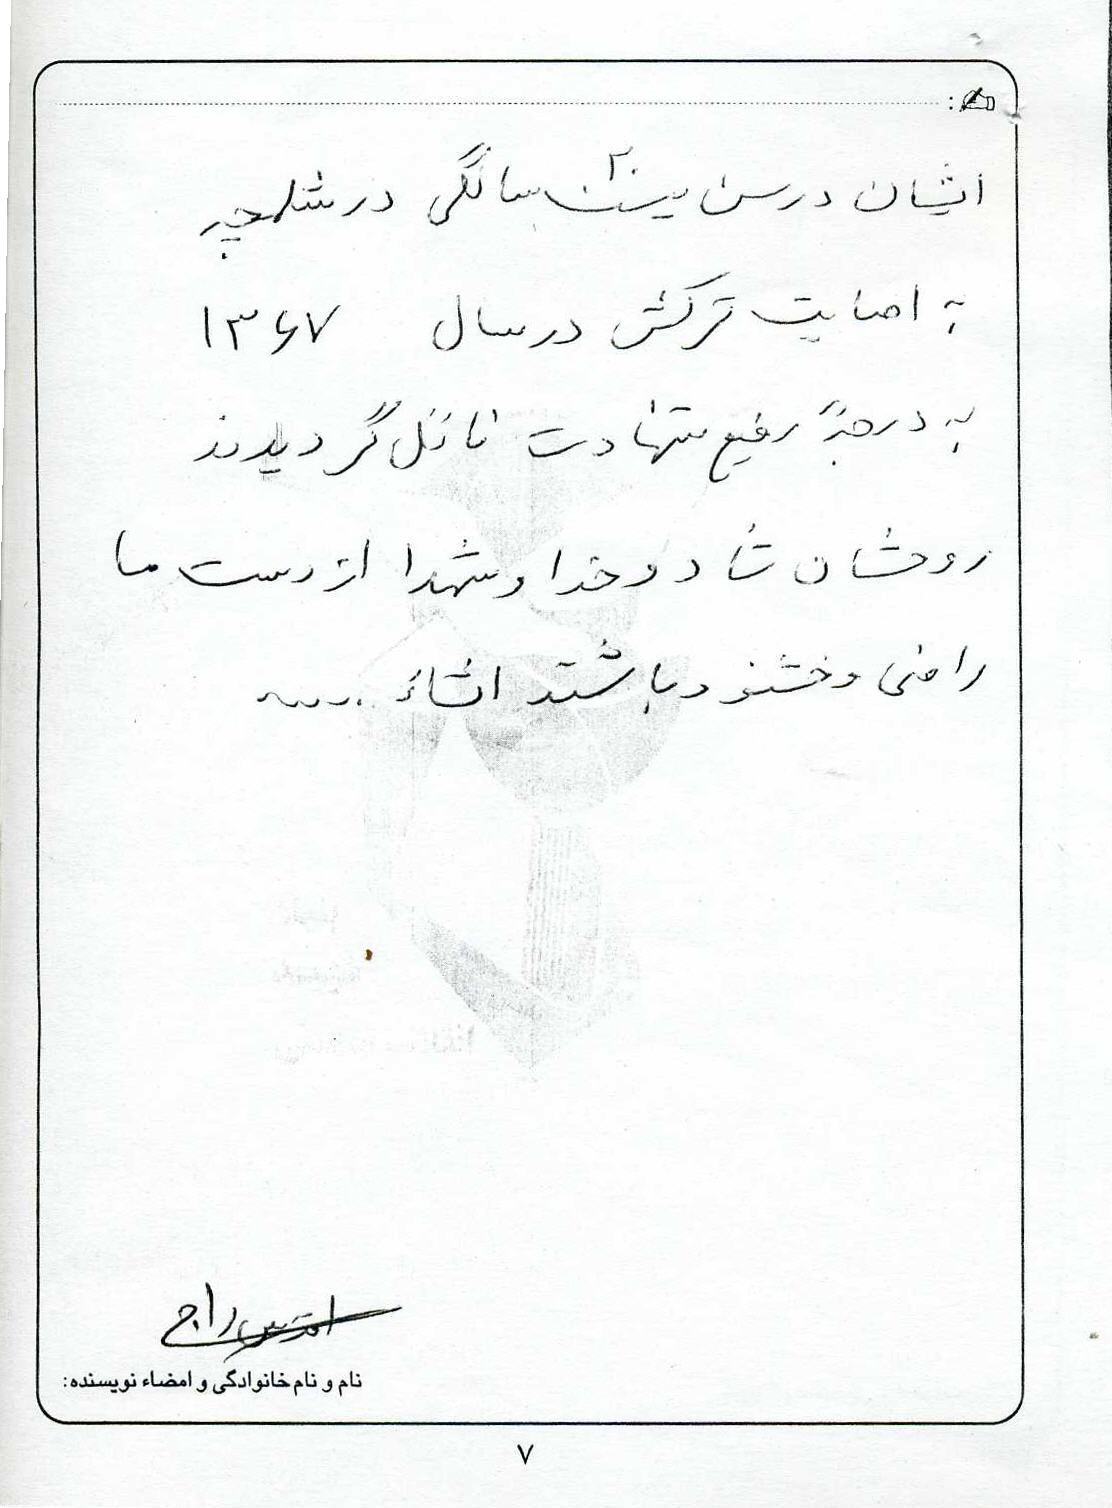 ایشان در سن بیست ۲۰ سالگی در شلمچه
به اصابت ترکش در سال ۱۳۶۷
به درجهٔ رفیع شهادت نائل گردیدند
روحشان شاد و خدا و شهدا از دست ما
راضی و خشنود باشند انشاء ...
اقدس راجی
نام و نام خانوادگی و امضاء نویسنده:
۷